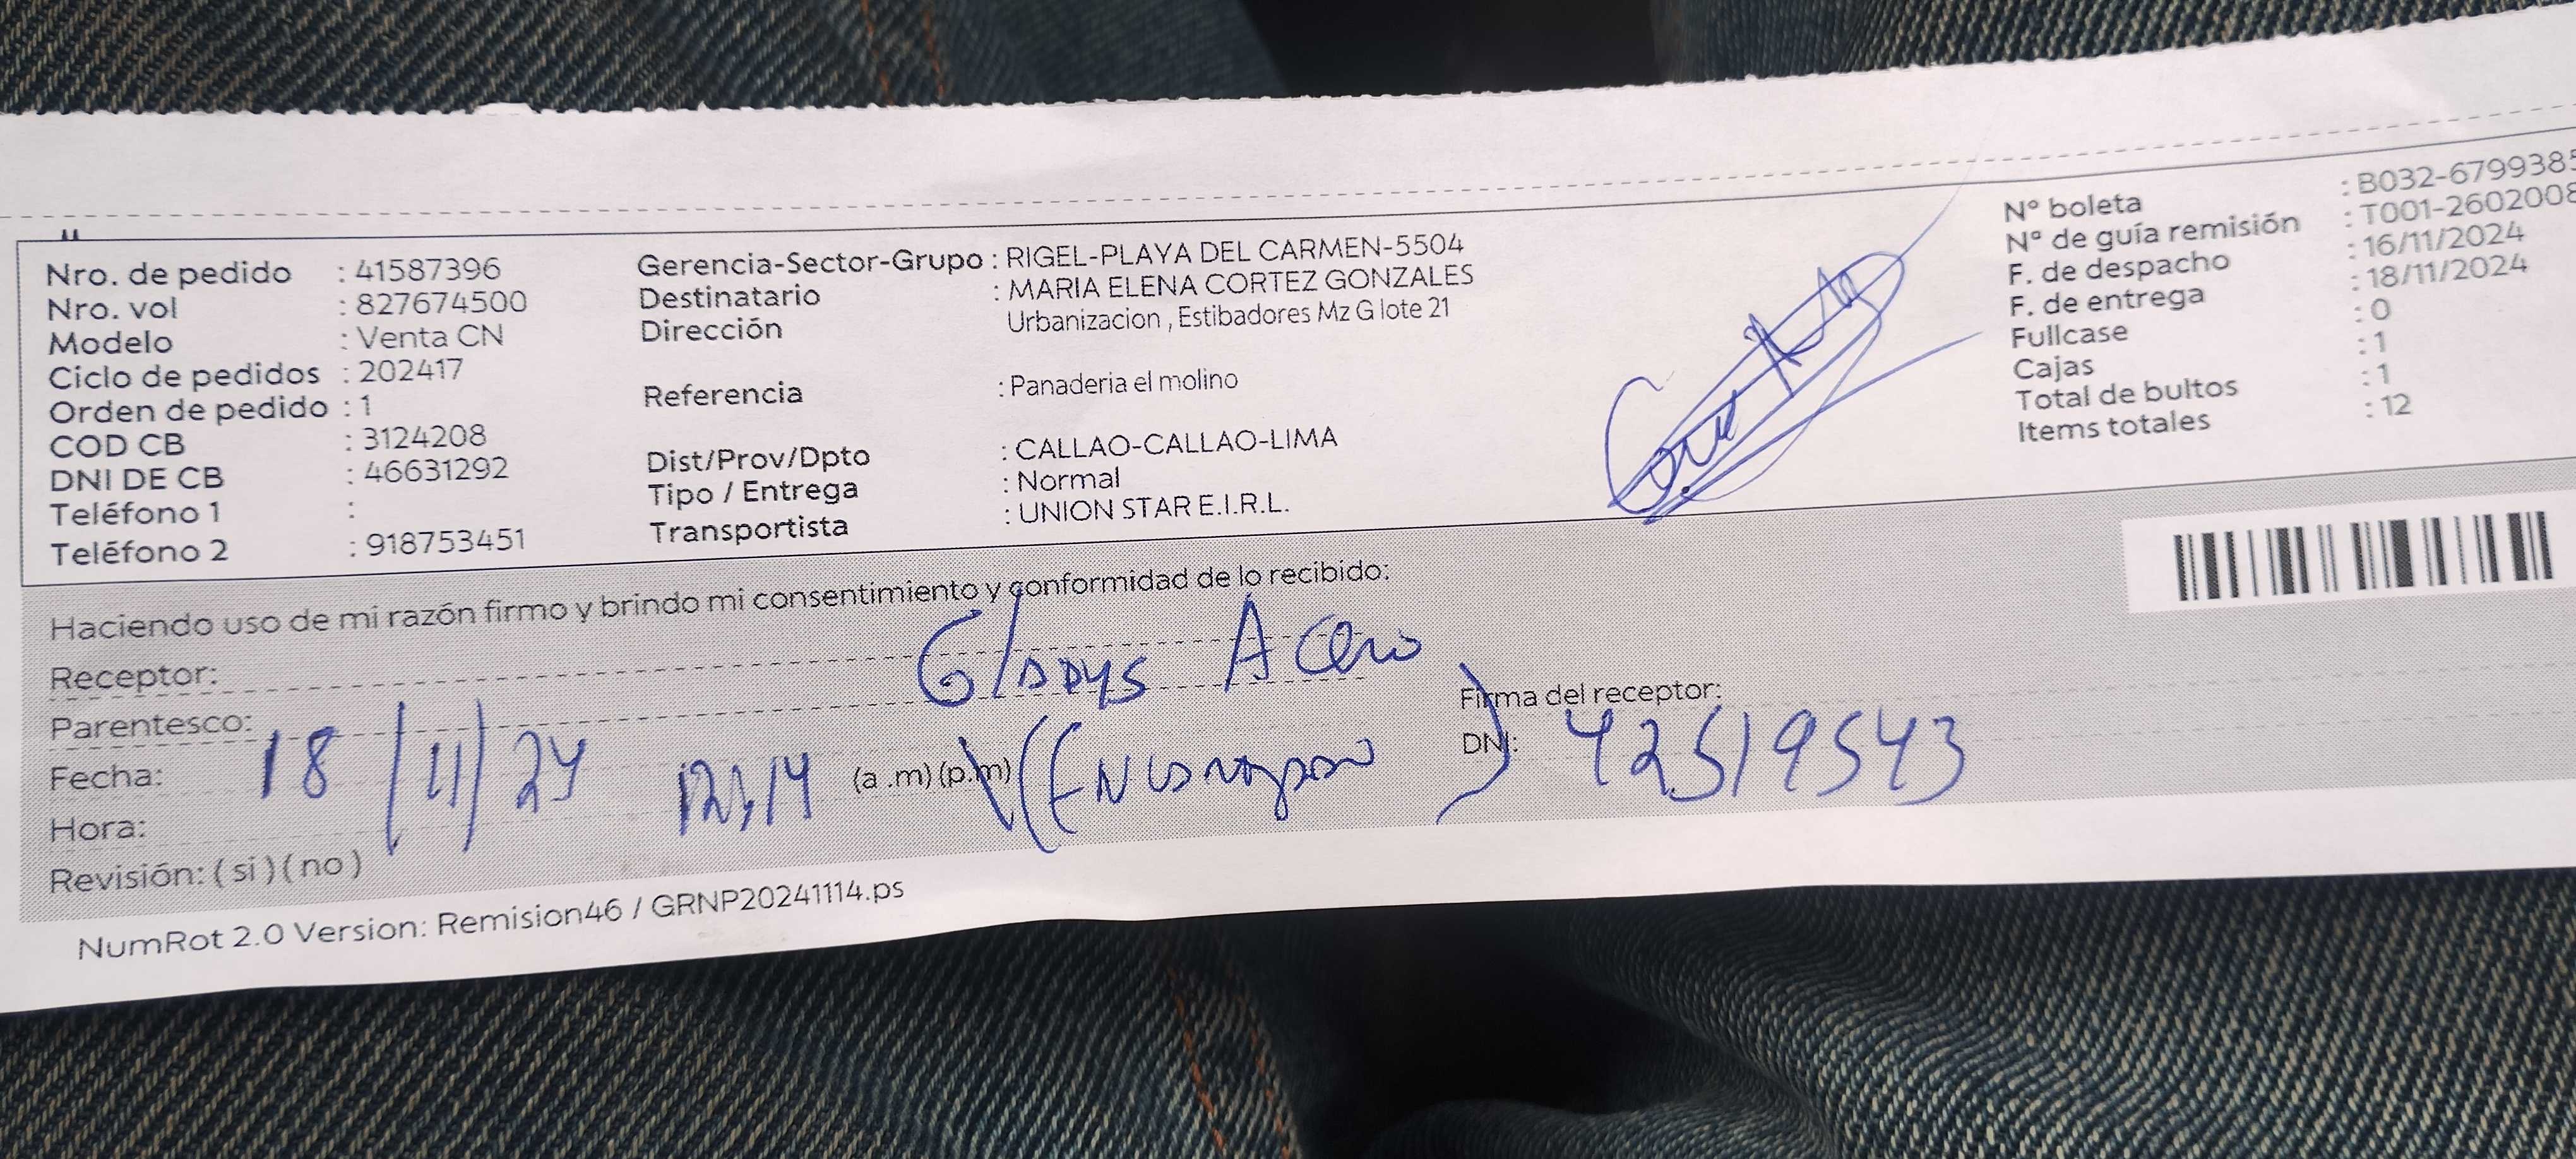 Nro. de pedido : 41587396
Nro. vol : 827674500
Modelo : Venta CN
Ciclo de pedidos : 202417
Orden de pedido : 1
COD CB : 3124208
DNI DE CB : 46631292
Teléfono 1 :
Teléfono 2 : 918753451
Gerencia-Sector-Grupo : RIGEL-PLAYA DEL CARMEN-5504
Destinatario : MARIA ELENA CORTEZ GONZALES
Dirección Urbanizacion , Estibadores Mz G lote 21
Referencia : Panaderia el molino
Dist/Prov/Dpto : CALLAO-CALLAO-LIMA
Tipo / Entrega : Normal
Transportista : UNION STAR E.I.R.L.
N° boleta : B032-6799385
N° de guía remisión : T001-2602008
F. de despacho : 16/11/2024
F. de entrega : 18/11/2024
Fullcase : 0
Cajas : 1
Total de bultos : 1
Items totales : 12
Haciendo uso de mi razón firmo y brindo mi consentimiento y conformidad de lo recibido:
Receptor: Gladys Acero
Parentesco:
Firma del receptor:
Fecha: 18/11/24
Hora: 12:14 (a .m) (p.m)
DNI: 42519543
Revisión: ( si ) ( no )
NumRot 2.0 Version: Remision46 / GRNP20241114.ps